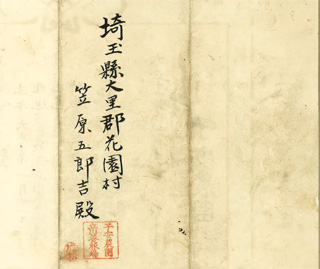 埼玉縣大里郡花園村
笠原五郎吉殿